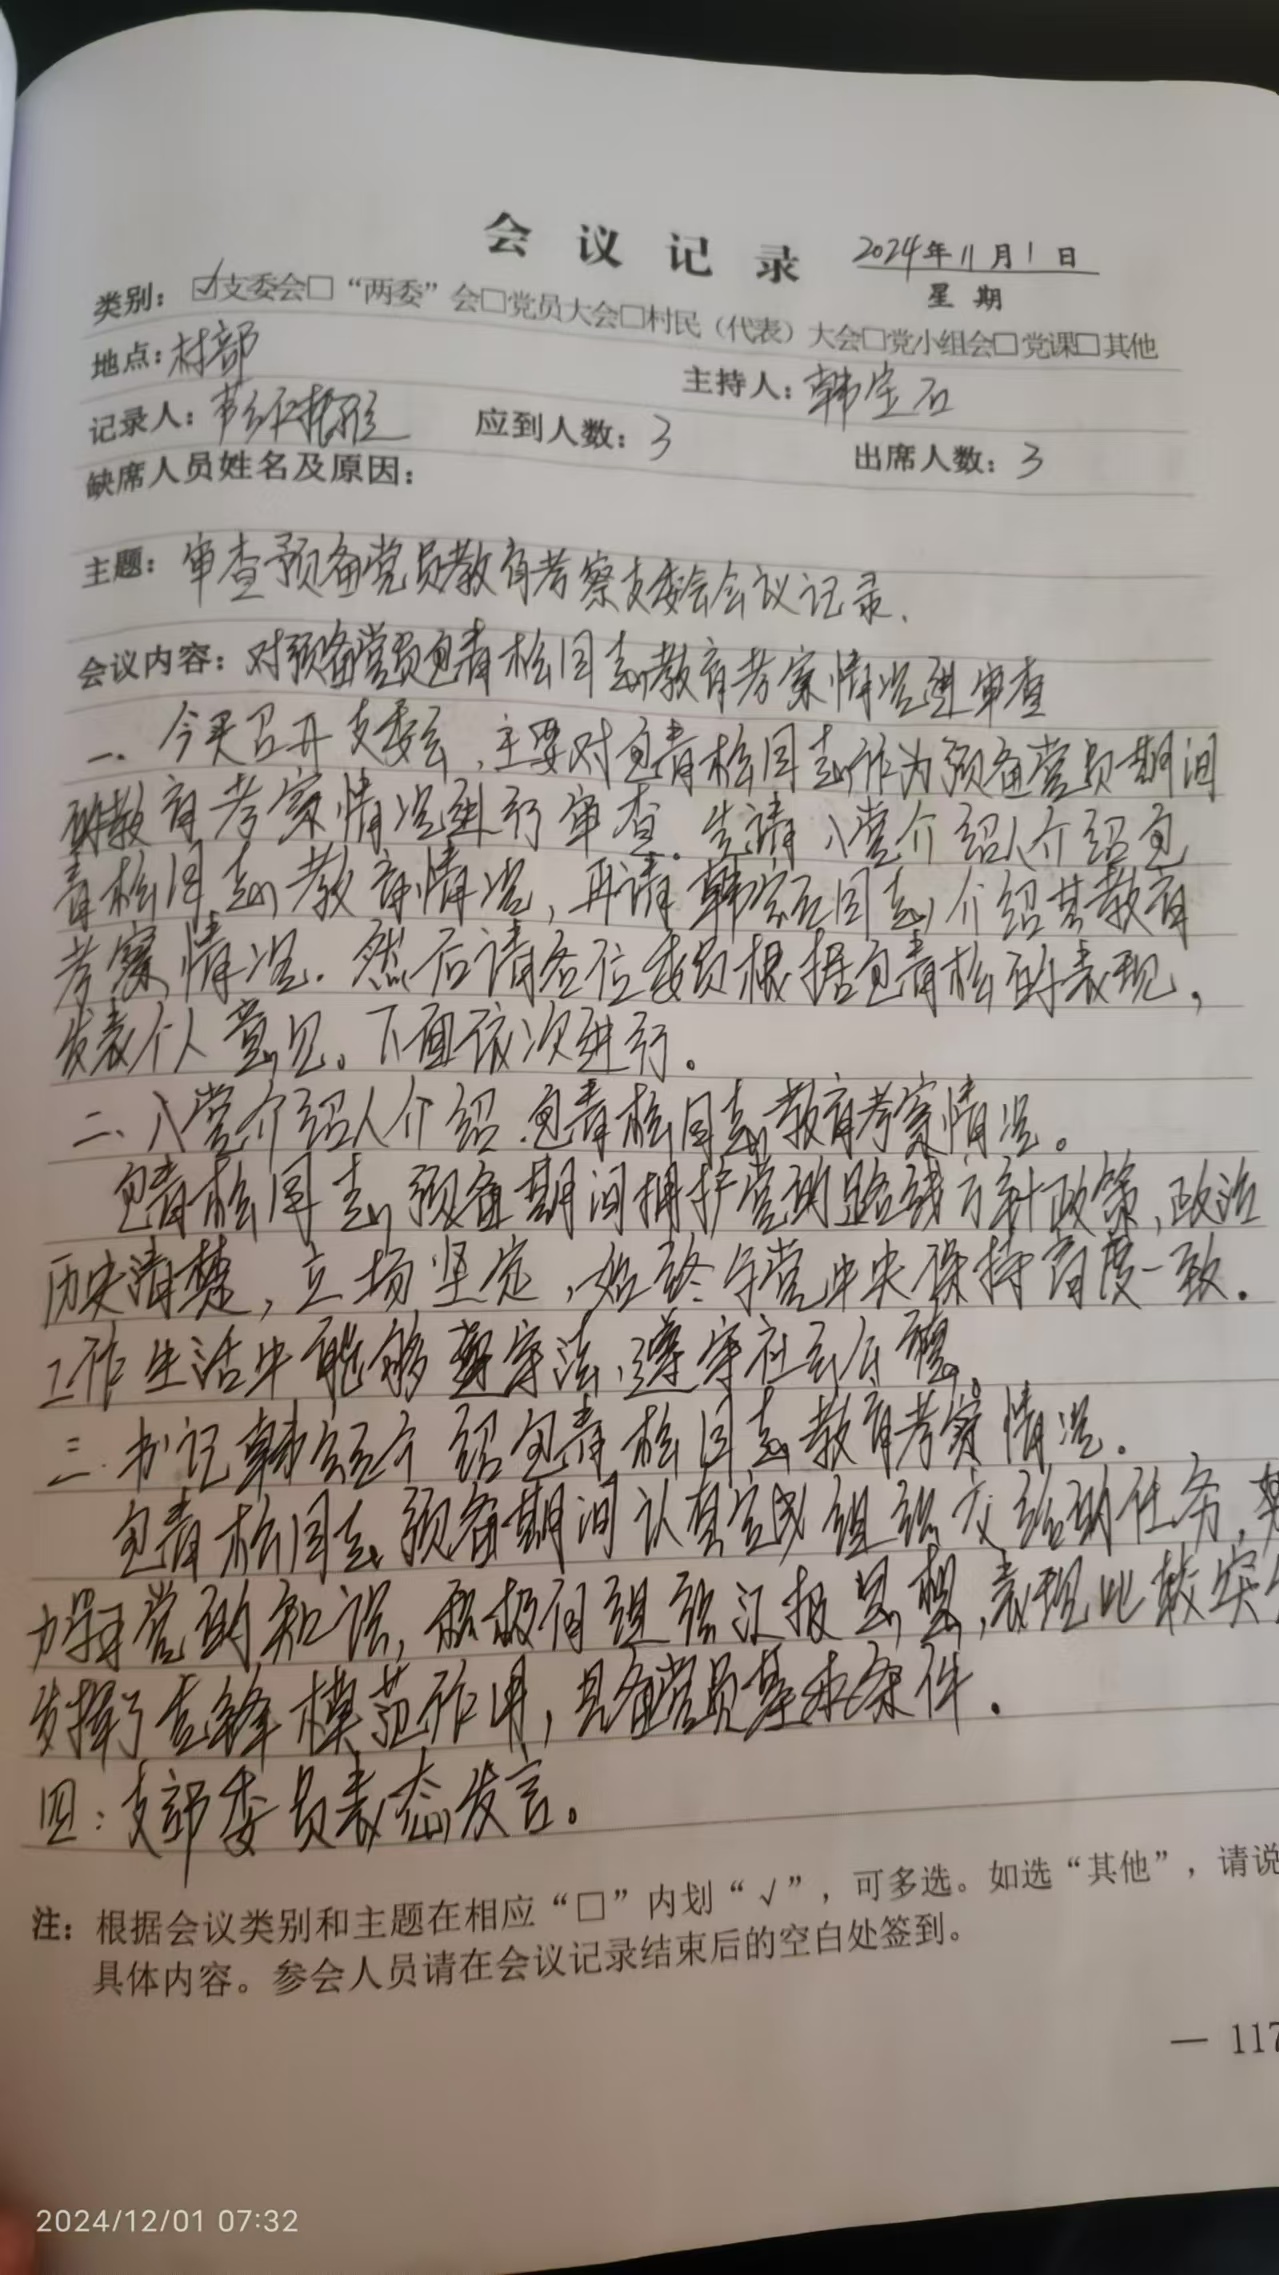 会议记录 2024年11月1日
星期
类别：☑支委会□“两委”会□党员大会□村民（代表）大会□党小组会□党课□其他
地点：村部 主持人：韩宝石
记录人： 应到人数：3 出席人数：3
缺席人员姓名及原因：
主题：审查预备党员教育考察支委会会议记录.
会议内容：对预备党员包青松同志教育考察情况进审查
一、今天召开支委会，主要对包青松同志作为预备党员期间
的教育考察情况进行审查。先请入党介绍人介绍包
青松同志教育情况，再请韩宝石同志介绍其教育
考察情况.然后请各位委员根据包青松的表现，
发表个人意见。下面依次进行。
二、入党介绍人介绍包青松同志教育考察情况。
包青松同志预备期间拥护党的路线方针政策，政治
历史清楚，立场坚定，始终与党中央保持高度一致.
工作生活中能够遵守法，遵守社会公德。
三.书记韩宝石介绍包青松同志教育考察情况.
包青松同志预备期间认真完成组织交给的任务，努
力学习党的知识，积极向组织汇报思想，表现比较突
发挥了先锋模范作用，具备党员基本条件.
四：支部委员表态发言。
注：根据会议类别和主题在相应“□”内划“√”，可多选。如选“其他”，请说
具体内容。参会人员请在会议记录结束后的空白处签到。
— 117
2024/12/01 07:32